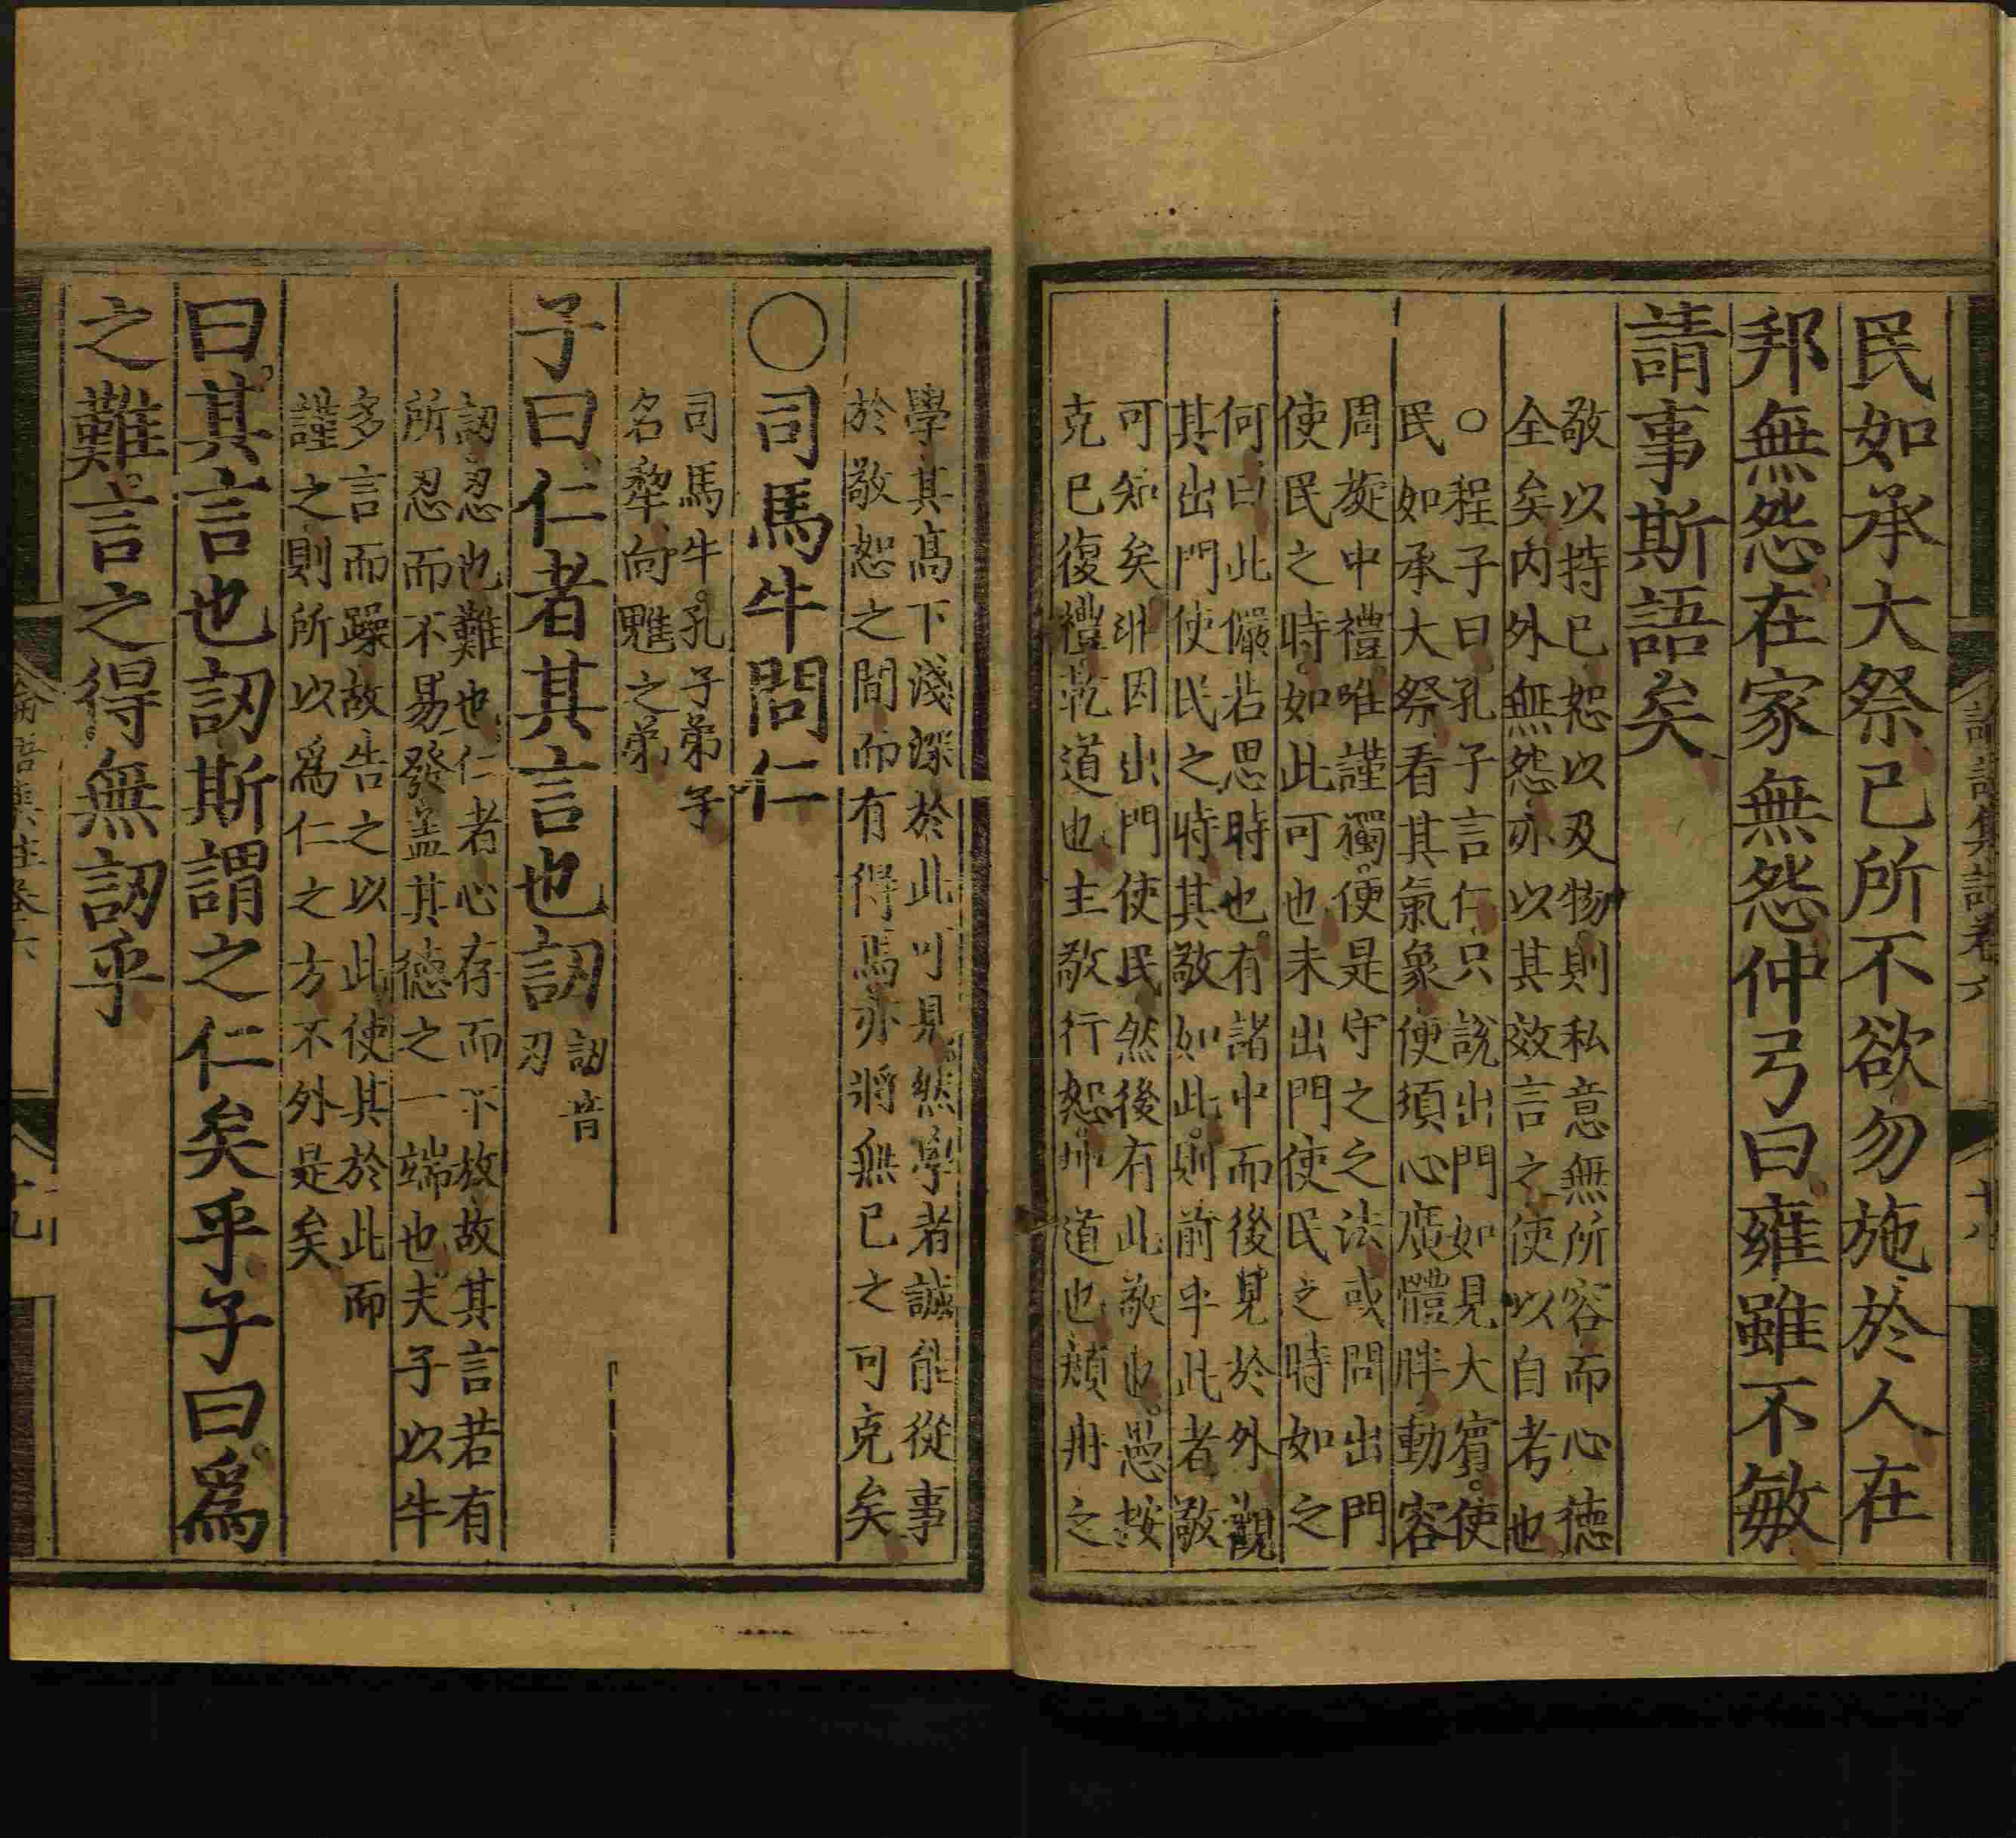 民如承大祭已所不欲勿施於人在
邦無怨在家無怨仲弓曰雍雖不敏
請事斯語矣
敬以持已恕以及物則私意無所容而心德
全矣内外無怨亦以其效言之使以自考也
○程子曰孔子言仁只說出門如見大賓使
民如承大祭看其氣象便須心廣體胖動容
周旋中禮唯謹獨便是守之之法或問出門
使民之時如此可也未出門使民之時如之
何曰此儼若思時也有諸中而後見於外觀
其出門使民之時其敬如此則前乎此者敬
可知矣非因出門使民然後有此敬也愚按
克已復禮乾道也主敬行恕坤道也顏冉之
學其高下淺深於此可見然學者誠能從事
於敬恕之間而有得焉亦將無已之可克矣
○司馬牛問仁
司馬牛孔子弟子
名犂向魋之弟
子曰仁者其言也訒
訒音
刃
訒忍也難也仁者心存而不放故其言若有
所忍而不易發盖其德之一端也夫子以牛
多言而躁故告之以此使其於此而
謹之則所以爲仁之方不外是矣
曰其言也訒斯謂之仁矣乎子曰爲
之難言之得無訒乎